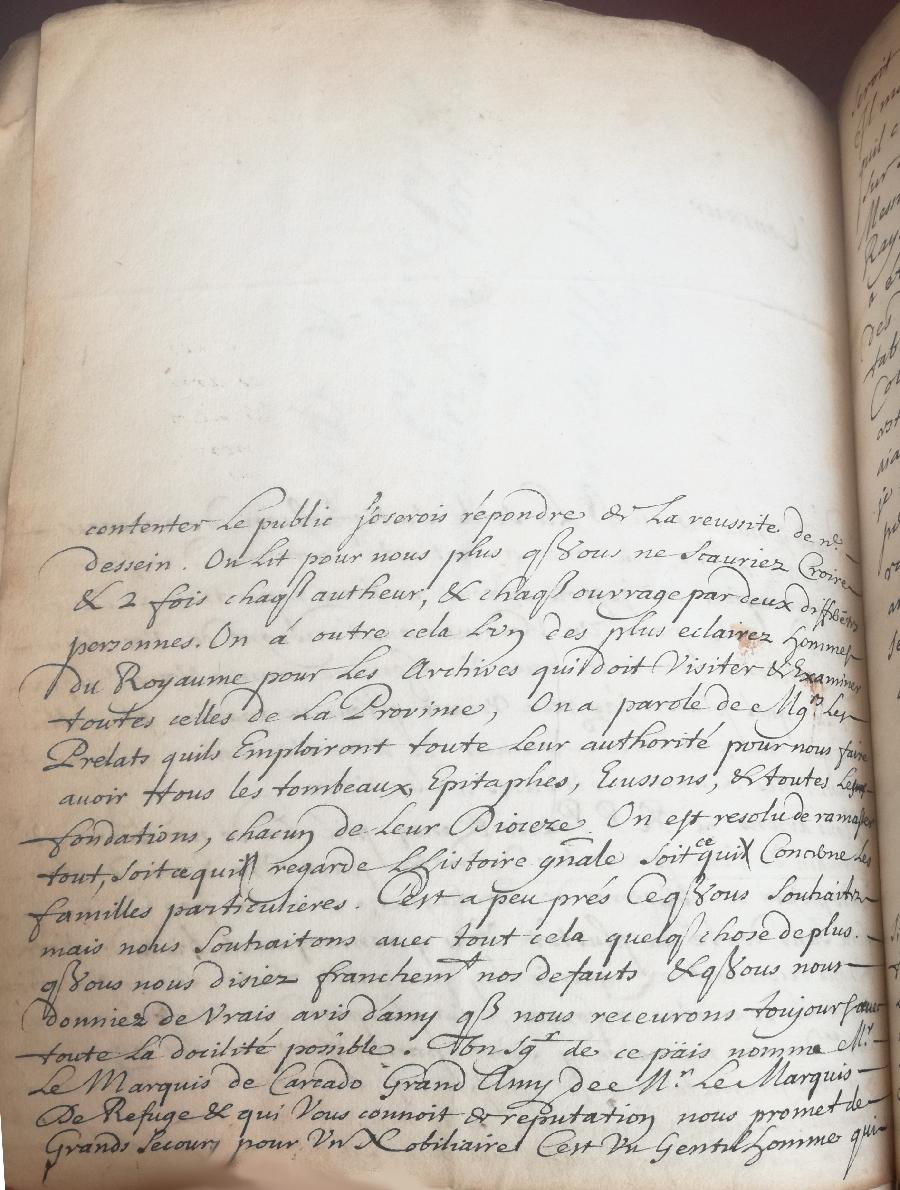 contenter Le public j'oserois répondre de La reussite de nre
dessein. On Lit pour nous plus qs Vous ne Scauriez Croire
& 2 fois chaqs autheur, & chaqs ouvrage par deux differens
personnes. On á outre cela Lvn des plus eclairez hommes
du Royaume pour Les Archives qui doit Visiter & Examiner
toutes celles de La Province, On a parole de Mgrs Les
Prelats quils Emploiront toute Leur authorité pour nous faire
avoir tous les tombeaux, Epitaphes, Ecussons, & toutes Les
fondations, chacun de Leur Dioceze. On est resolu de ramasser
tout, soit ce qui regarde LHistoire gnãle soit ce qui Concerne Les
familles particulieres. C'est a peu prés Ce qs Vous Souhaitez
mais nous Souhaitons avec tout cela quelqs chose de plus.
qs Vous nous disiez franchemt nos defauts & qs Vous nous
donniez de Vrais avis damy qs nous recevrons toujours avec
toute La docilité possible. Vn Sgr de ce päis nomme Mr
Le Marquis de Carcado Grand Amy de Mr Le Marquis
De Refuge & qui Vous connoit de reputation nous promet de
Grands Secours pour Vn Nobiliaire C'est Vn Gentilhomme qui